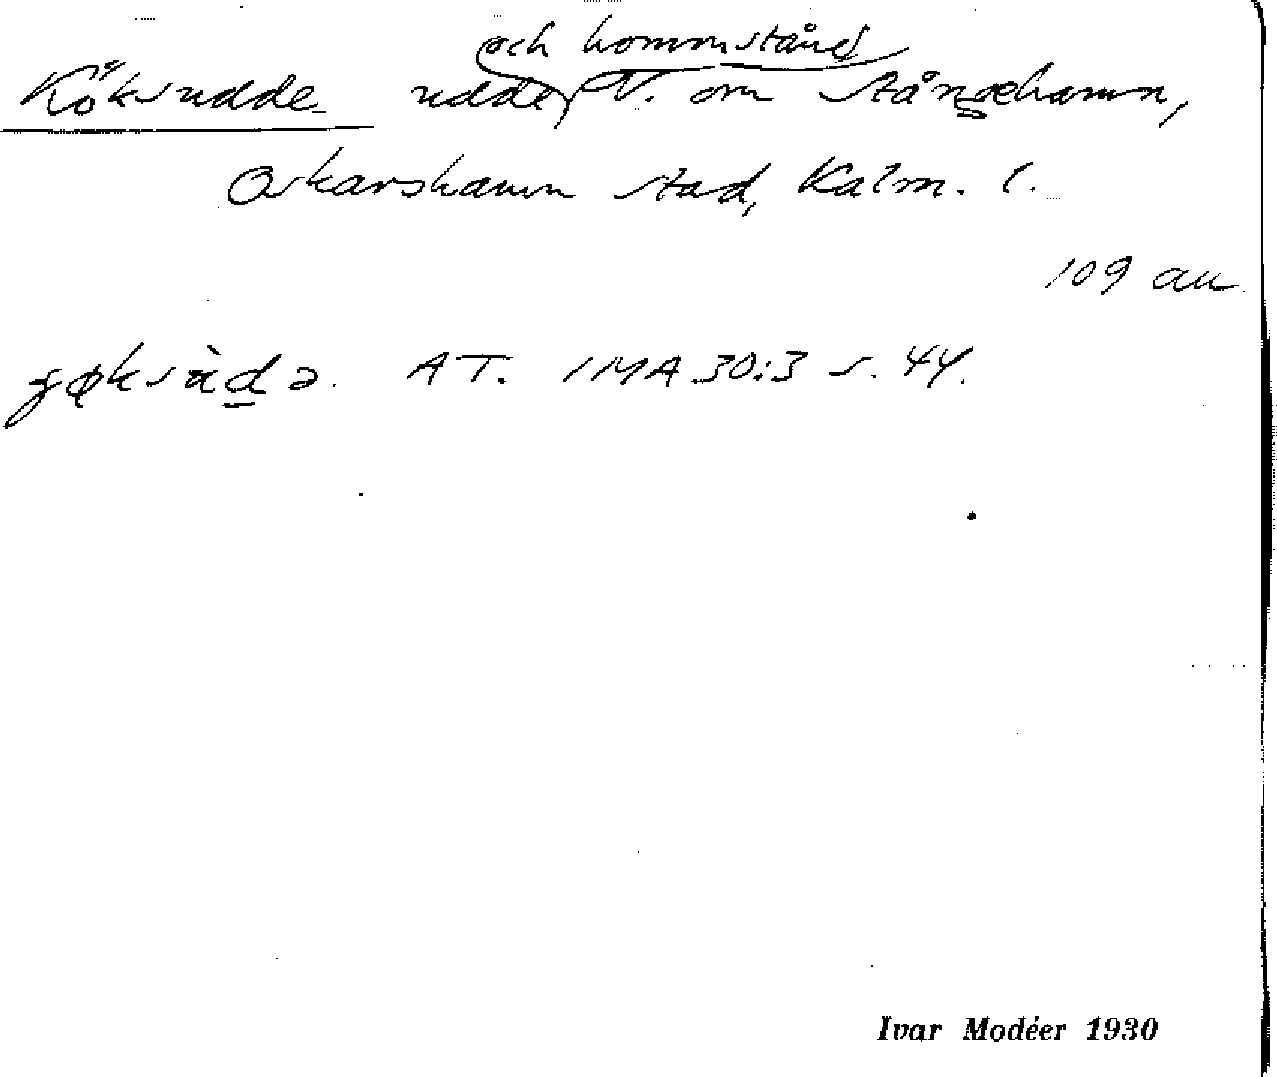 Köksudde udde och kommstånd V. om Stångehamn,
Oskarshamn stad, Kalm. l.
109 au
AT. IMA 30:3 s. 44.
Ivar Modéer 1930